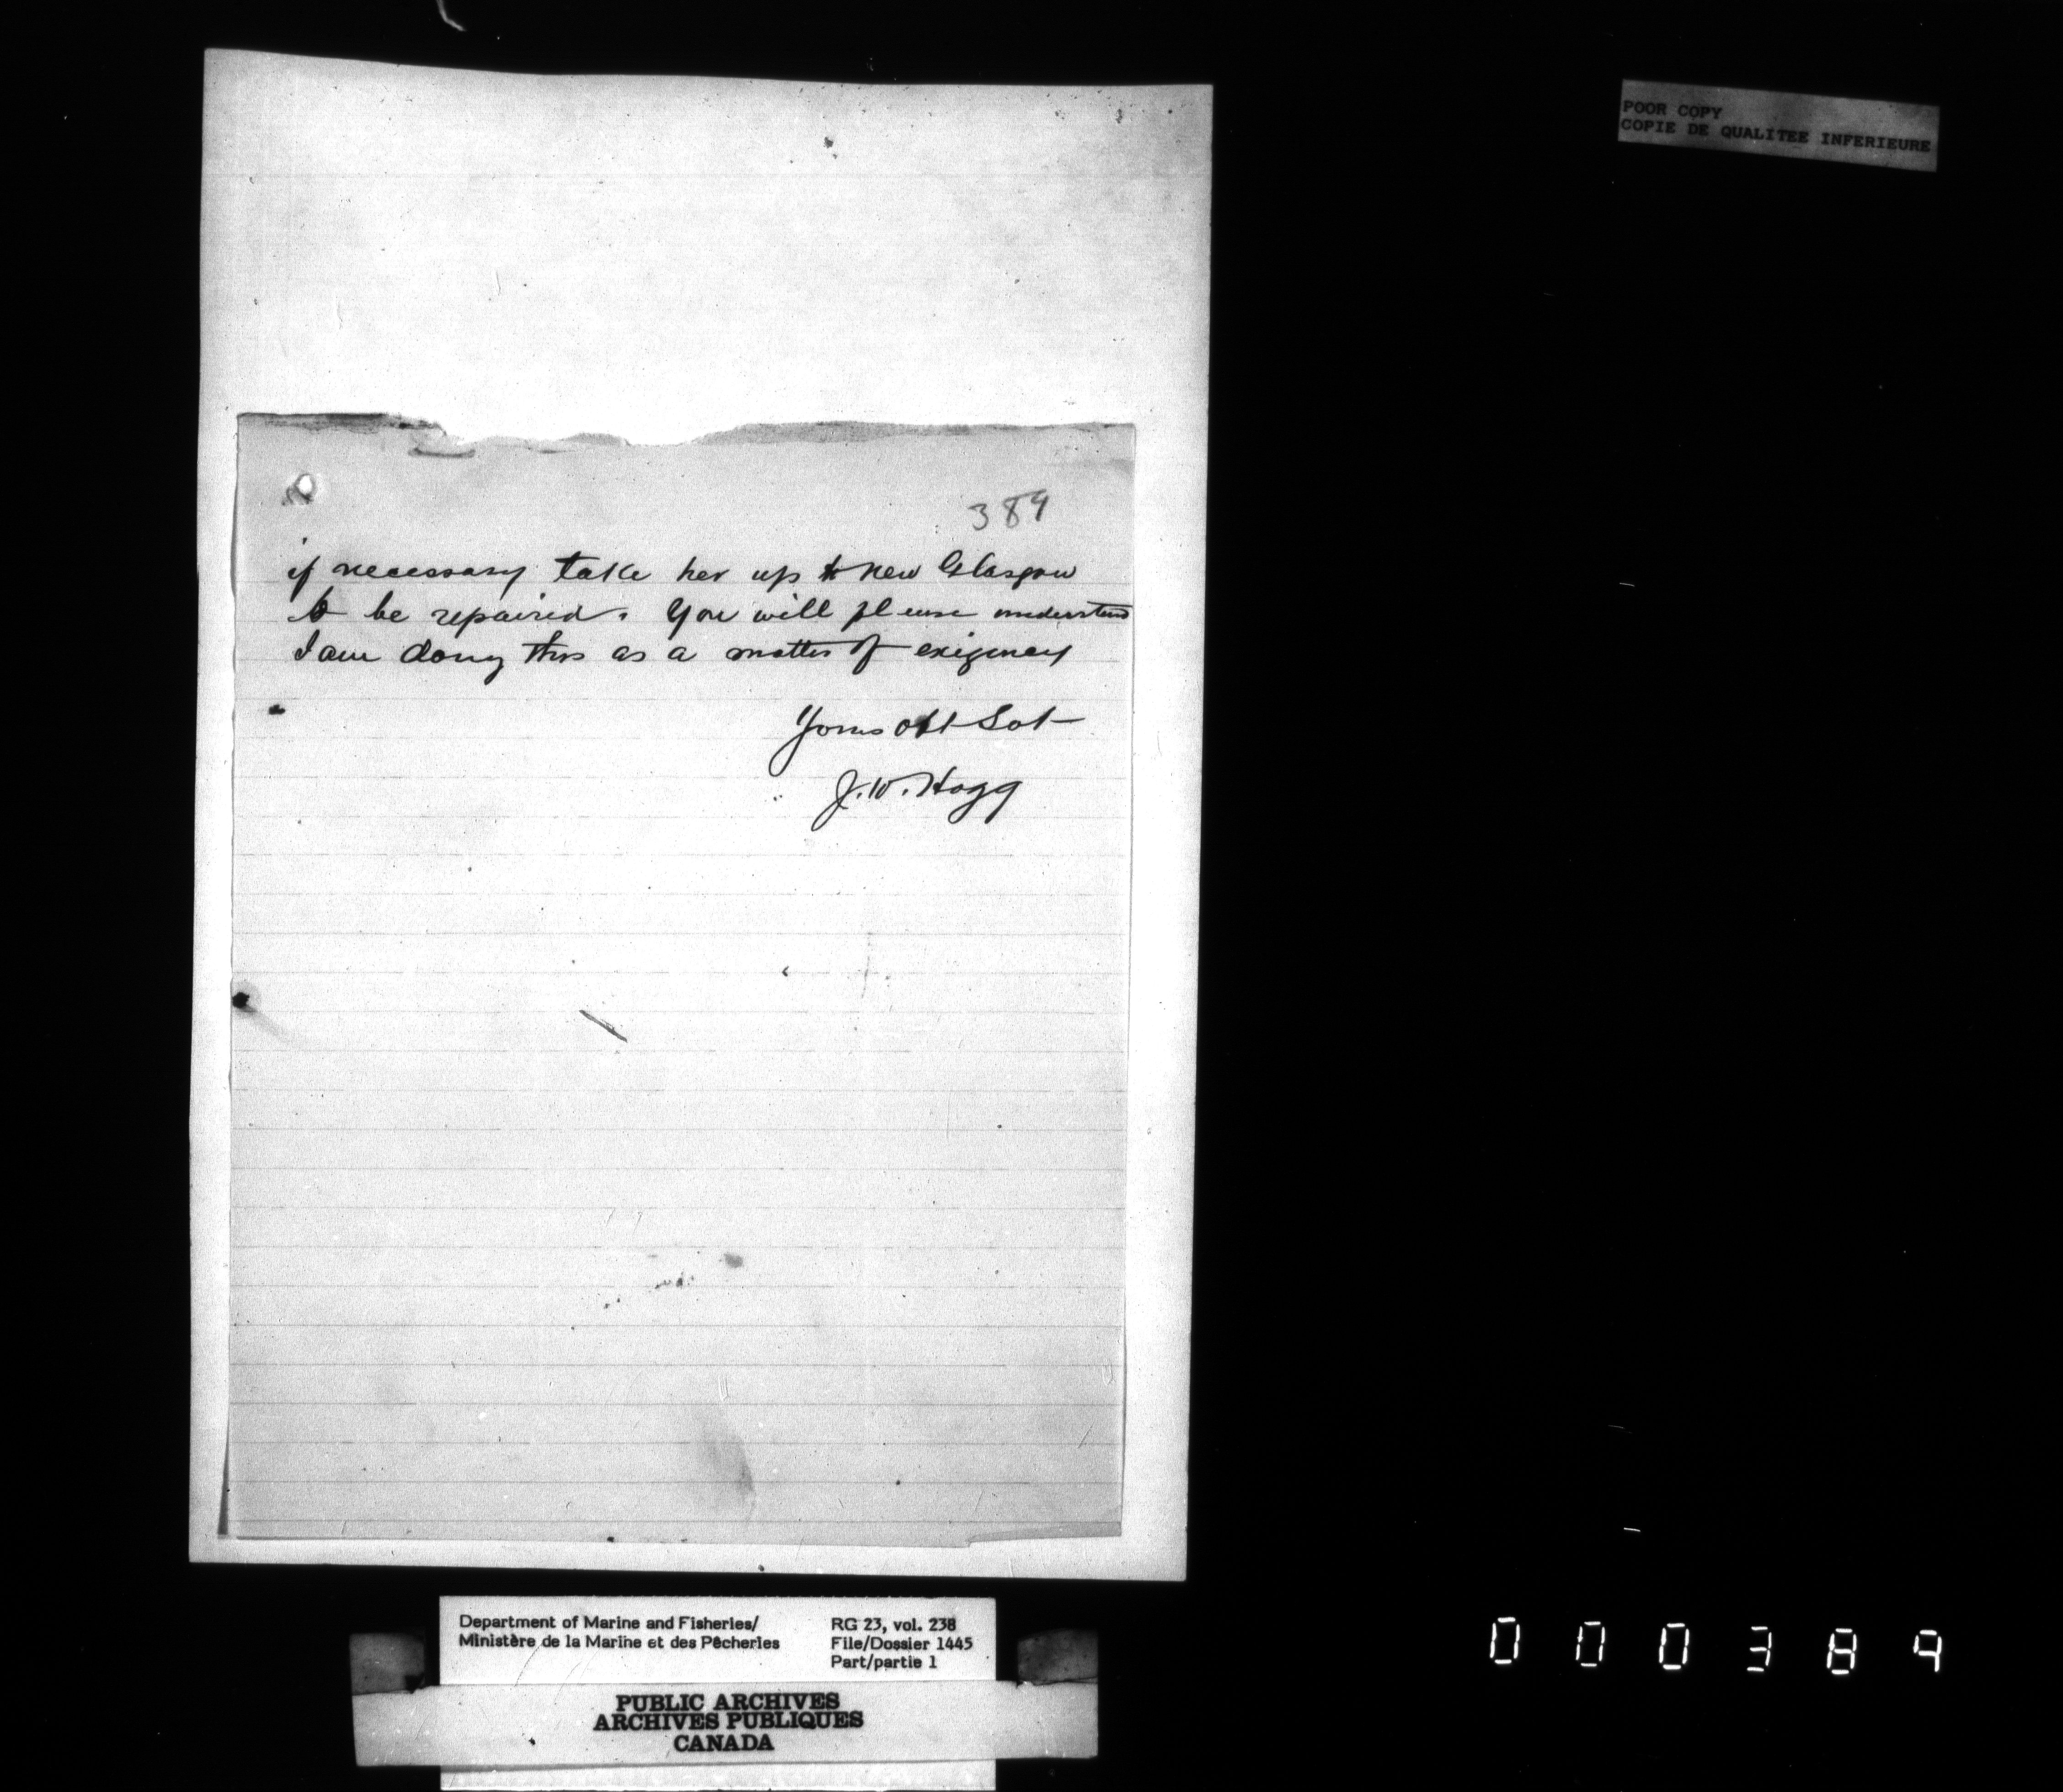 POOR COPY
COPIE DE QUALITEE INFERIEURE
389
if necessary take her up to new Glasgow
to be repaired. You will please understand
I am doing this as a matter of exigency
Yours obt Svt
J. W. Hogg
Department of Marine and Fisheries/
Ministère de la Marine et des Pêcheries
RG 23, vol. 238
File/Dossier 1445
Part/partie 1
PUBLIC ARCHIVES
ARCHIVES PUBLIQUES
CANADA
000389